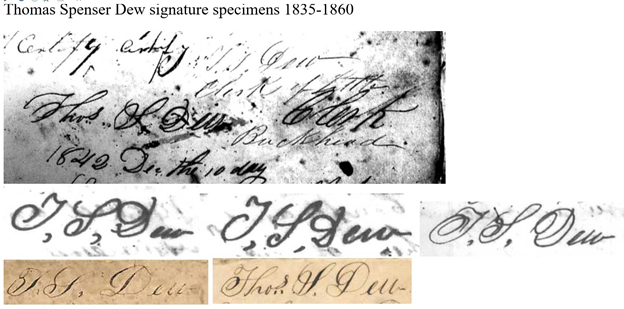 Thomas Spenser Dew signature specimens 1835-1860
I Certify Certify T S Dew
Clerk of
Thos. S. Dew Clerk
Buckhead
1842 Dec the 10 day
T, S, Dew T, S, Dew T, S, Dew
T. S. Dew Thos. S. Dew